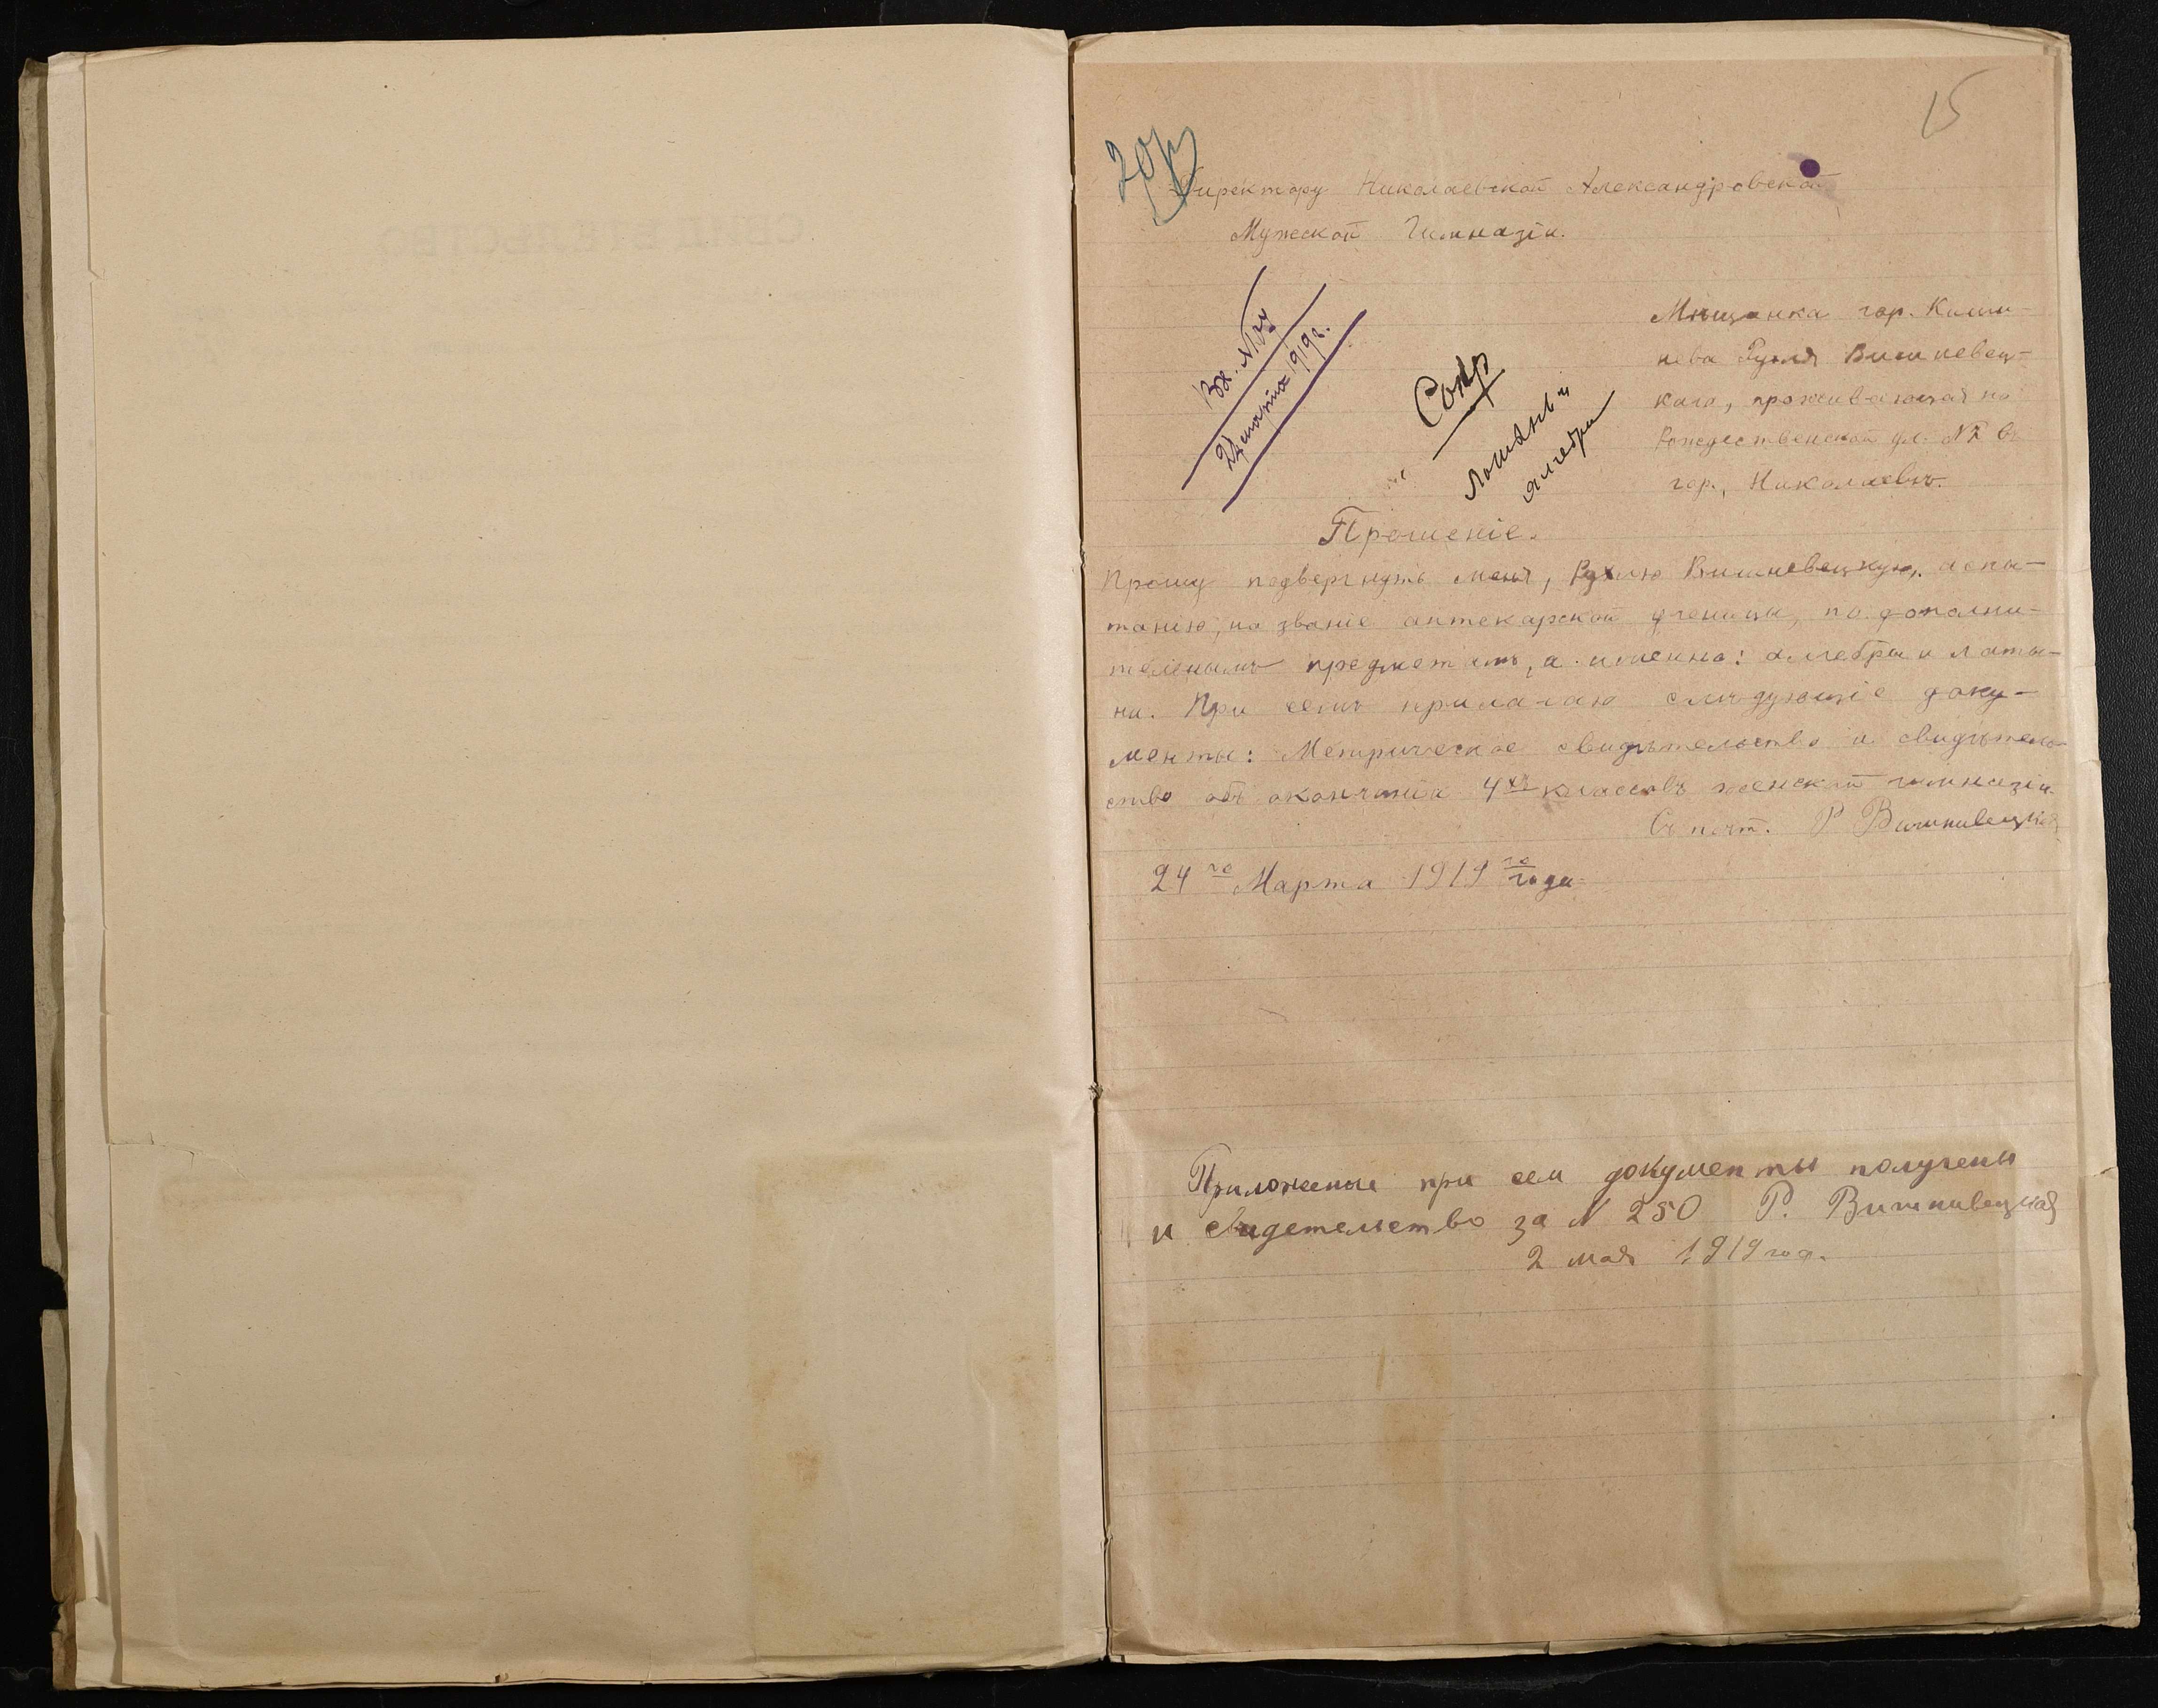 15
Директору Николаевской Александровской
Мужской Гимназіи.
Вх. №
24 марта 1919 г.
Латынь и
алгебра
Мѣщанка гор. Киши-
нева Рухля Вишневец-
кая, проживающая по
Рождественской ул. въ
гор. Николаевѣ.
Прошеніе.
Прошу подвергнуть меня, Рухлю Вишневецкую, испы-
танію, на званіе аптекарской ученицы, по дополни-
тельнымъ предметамъ, а именно: алгебры и латы-
ни. При семъ прилагаю слѣдующіе доку-
менты: Метрическое свидѣтельство и свидѣтель-
ство объ окончаніи 4хъ классовъ женской гимназіи.
Съ почт. Р Вишневецкая
24го Марта 1919го года
Приложеные при сем документы получены
и свидетельство за N 250 Р. Вишневецкая
2 мая 1919 год.